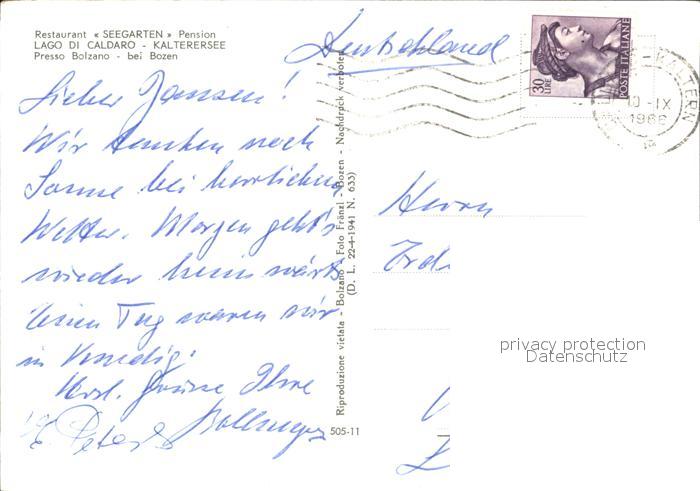 Restaurant « SEEGARTEN » Pension
LAGO DI CALDARO - KALTERERSEE
Presso Bolzano - bei Bozen
Deutschland
30
LIRE
POSTE ITALIANE
KALTERN
10 -IX
1966
Lieber Jansen!
Wir tanken noch
Sonne bei herrlichem
Wetter. Morgen geht's
wieder heimwärts
Einen Tag waren wir
in Venedig.
Herzl. Grüsse Ihre
Herrn
Riproduzione vietata - Bolzano - Foto Fränzl - Bozen - Nachdruck verboten
(D. L. 22-4-1941 N. 633)
505-11
privacy protection
Datenschutz